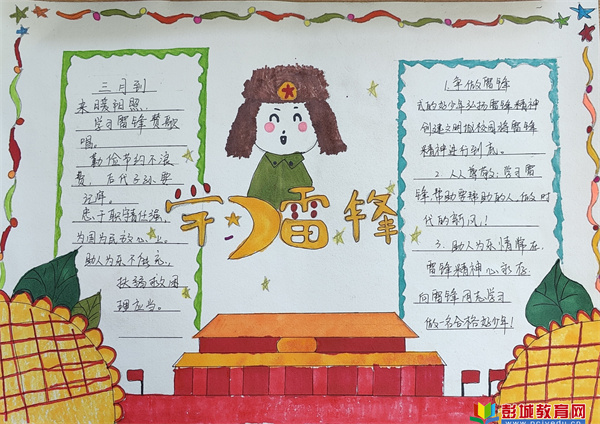 三月到
来暖阳照,
学习雷锋赞歌
唱。
勤俭节约不浪
费,后代子孙要
记牢。
忠于职守責任强,
为国为民放心上。
助人为乐不能忘,
扶弱救困
理应当。
学习雷锋
1.争做雷锋
式的好少年弘扬雷锋精神
创建文明做校园将雷锋
精神进行到底。
2.人人尊敬;学习雷
锋.帮助需帮助的人,做时
代的新风!
3.助人为乐情常在
雷锋精神心永在
向雷锋同志学习
做一名合格好少年!
彭城教育网
www.pcjyedu.cn